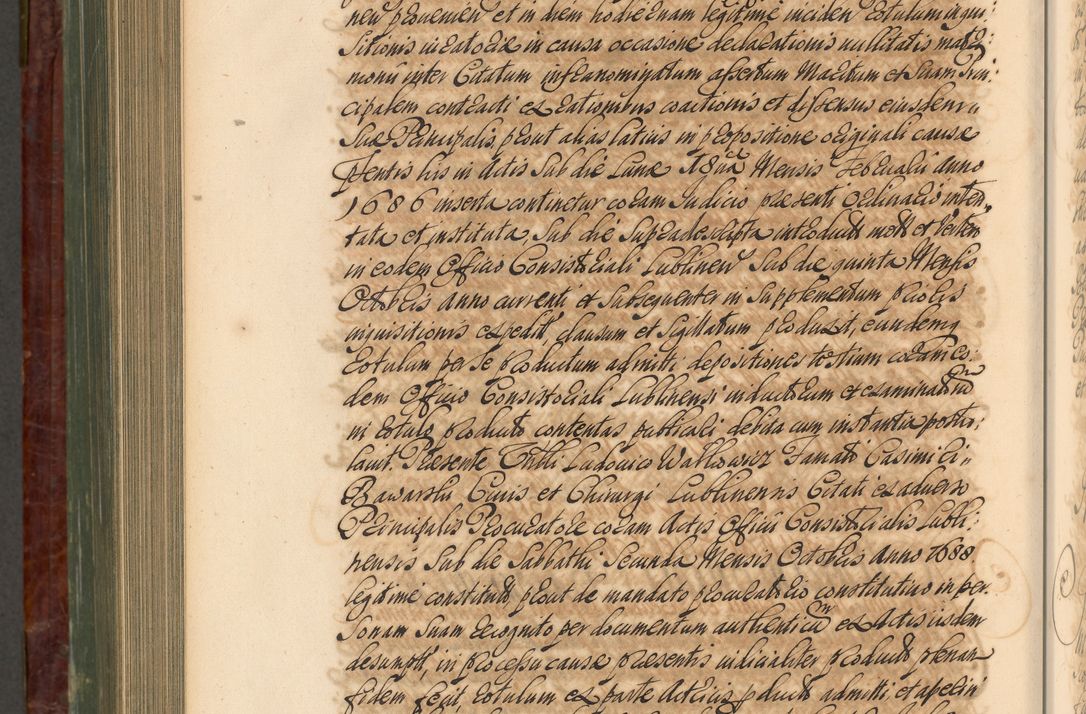 neñ provenien et in diem hodiernam legitime inciden rotulum inqui:
sitionis in eatorie in causa occasione declarationis nullitatis matri:
monii inter Citatum infranominatum assertum Maritum et Suam Prin:
cipalem contracti ex rationibus coactionis et dissensus eiusdem
Suæ Principalis, prout alias latius in propositione originali causæ
pñtis his in Actis Sub die Lunæ 18va Mensis Februarii anno
1686 inserta continetur coram Judicio præsenti Ordinario inten
tata et instituta, Sub die Supradescripta introducti moti et
in eodem Officio Consistoriali Lublineñ Sub die quinta Mensis
Octobris anno currenti et Subsequenter in Supplementum prioris
inquisitionis expedit clausum et Sigillatum produxit, eundemq
rotulum per se productum admitti depositiones testium coram eo:
dem Officio Consistoriali Lublinensi inductorum et examinatorum
in rotulo producto contentas publicari debita cum instantia postu:
lavit. Præsente Ludovico Famati Casimiri
Bawarski Civis et Chirurgi Lublinensis Citati ex adverso
Principalis Procuratore coram Actis Officii Consistorialis Lubli:
nensis Sub die Sabbathi Secunda Mensis Octobris Anno 1688
legitime constituto prout de mandato procuratorio constitutivo in per:
sonam Suam recognito per documentum authenticum ex Actis iisdem
desumpt, in processu causæ præsentis iudicialiter producto plenam
fidem fecit, rotulum ex parte Actricis producti admitti et aperiri